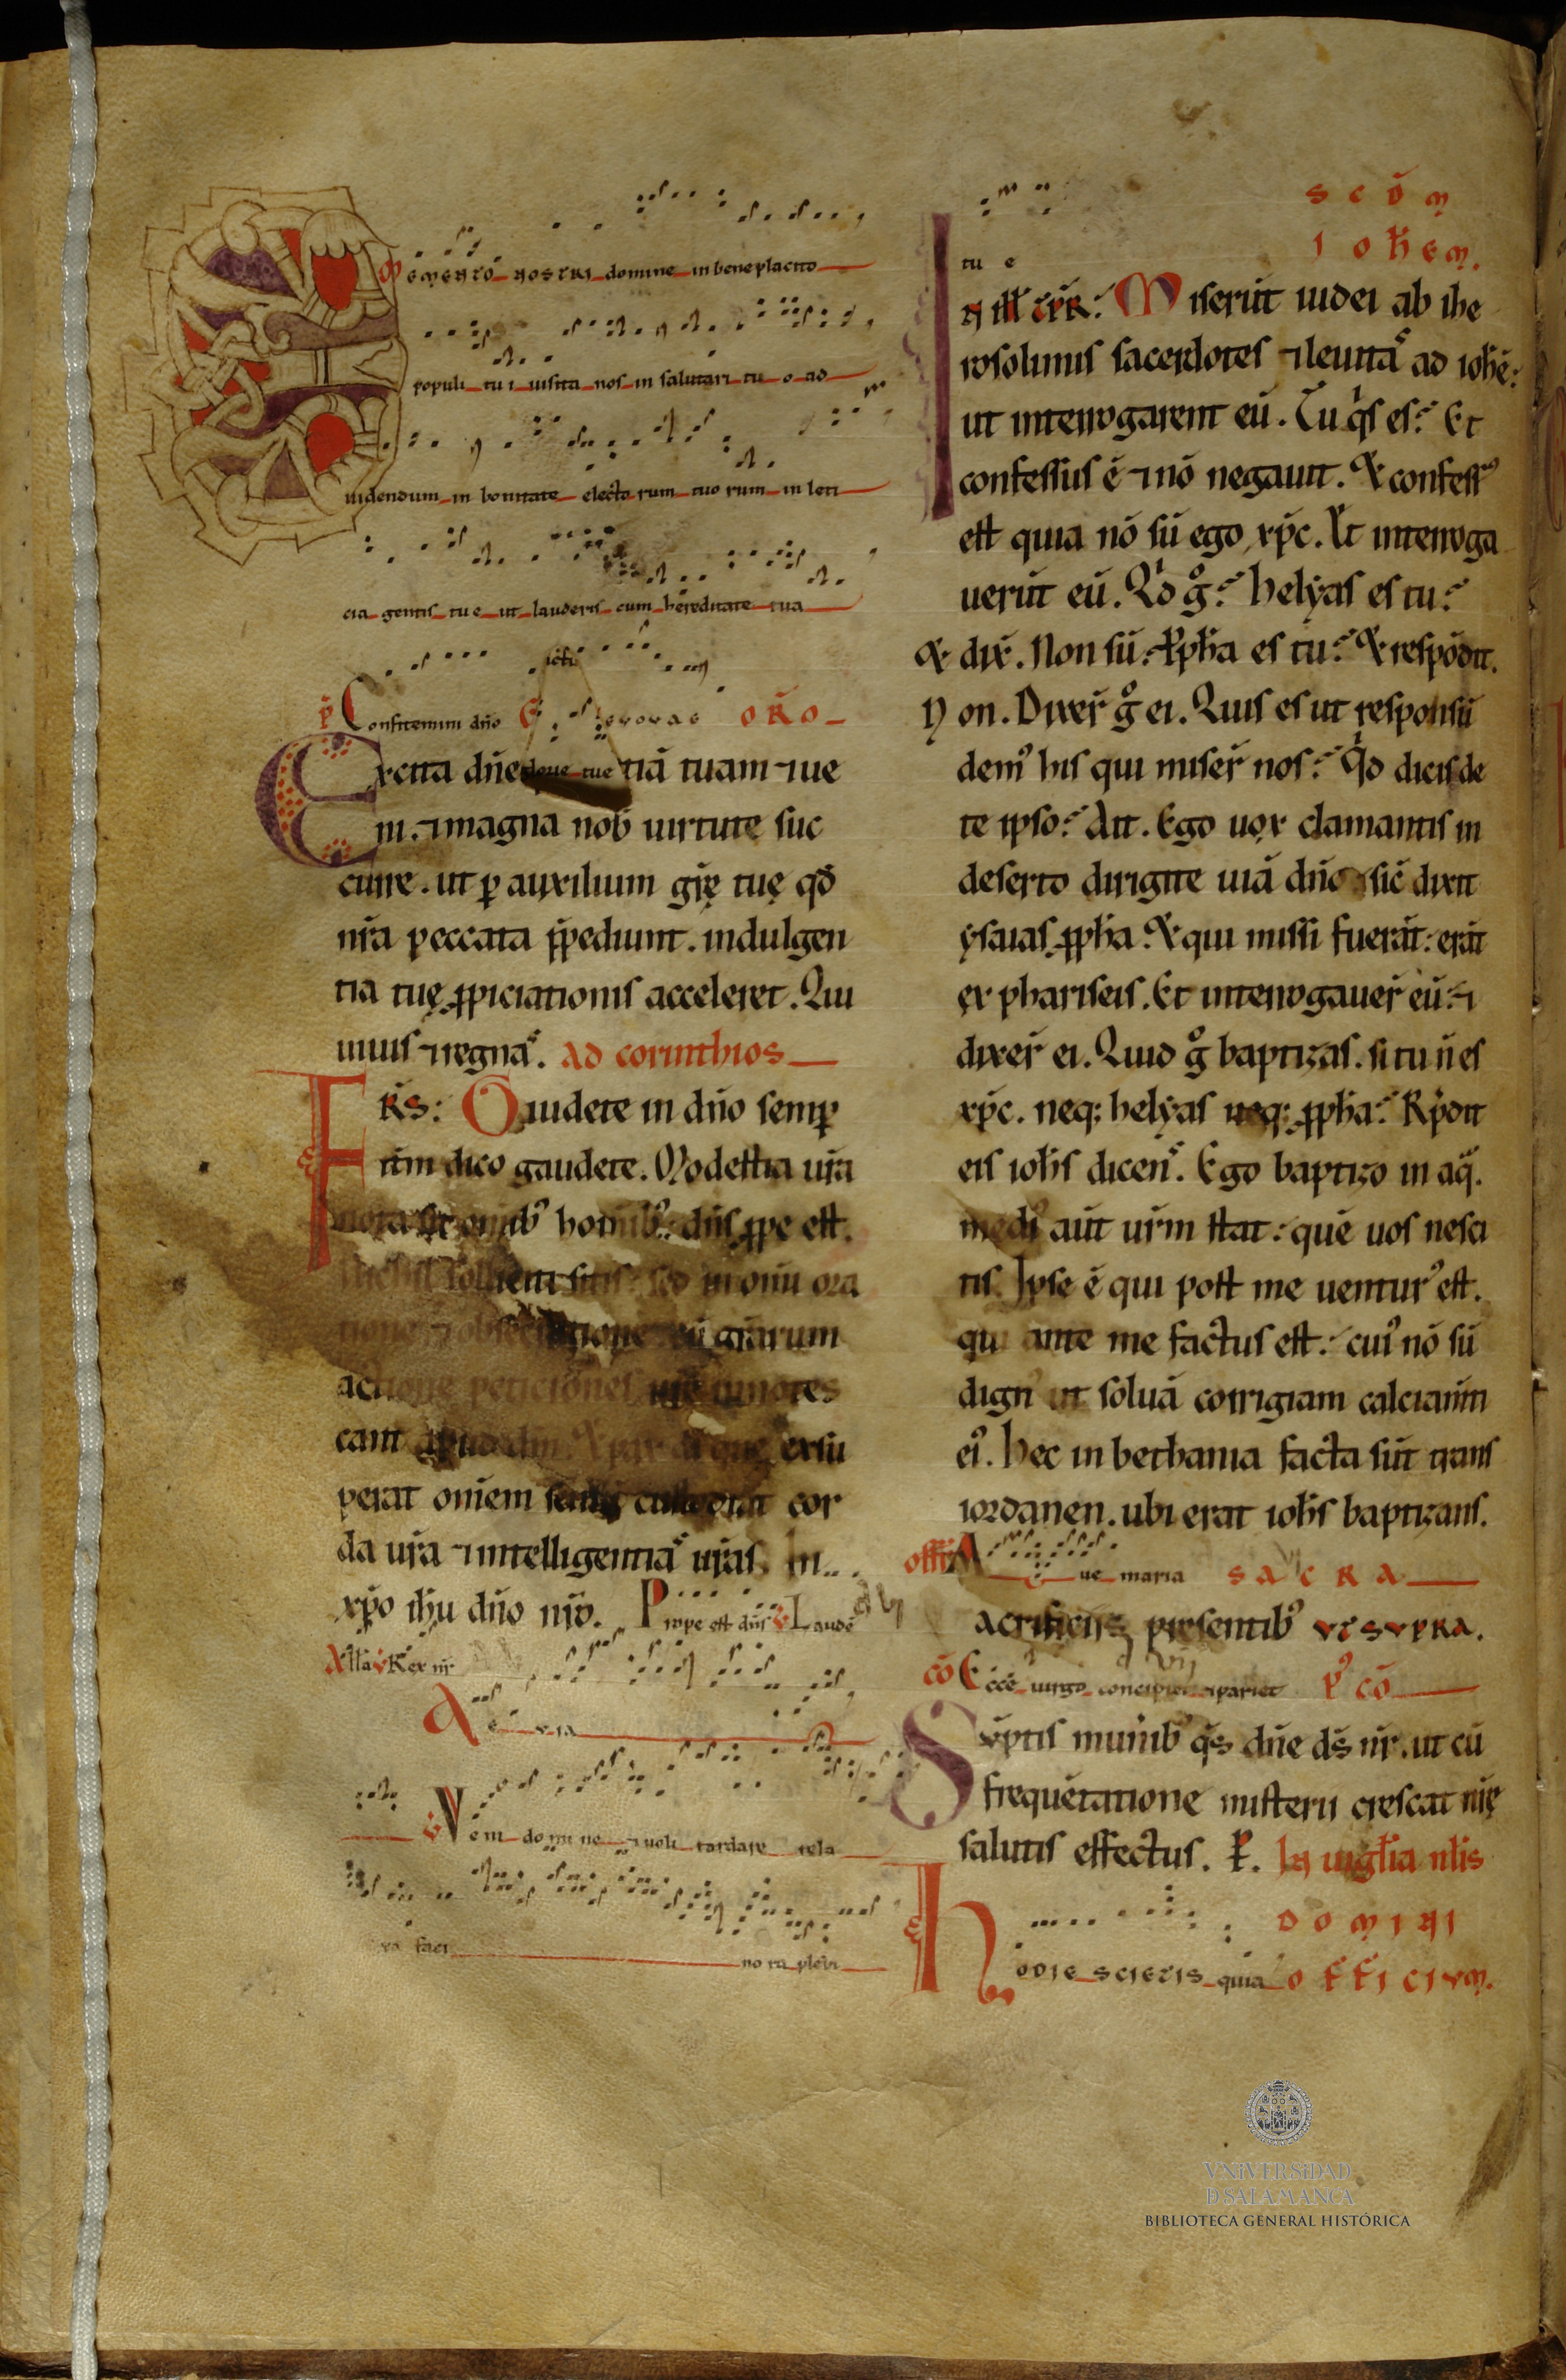 Memento nostri domine in beneplacito
populi tui uisita nos in salutari tuo ad
uidendum in bonitate electorum tuorum in leti
cia gentis tue ut lauderis cum hereditate tua
p̄s Confitemini dño E u o u a e ORŌ
Excita dñe tiā tuam ⁊ ue
ni. ⁊ magna nob̄ uirtute suc
curre. ut ꝑ auxilium grę̄ tuę qđ
nr̄a peccata p̄pediunt. indulgen
tia tuę ꝓpiciationis acceleret. Qui
uiuis ⁊ regnas. ad corinthios
FRS̄: Gaudete in dño semꝑ
itm̄ dico gaudete. Modestia ur̄a
nota sit om̄ib᾿ homīib᾿: dñs ꝓpe est.
Nichil solliciti sitis: sed in om̄i ora
tione ⁊ obsecratione cū gr̄arum
actione peticiōnes ur̄ę innotes
cant apud dm̄. Et pax di que exsu
perat om̄em sensū custodiat cor
da ur̄a ⁊ intelligentias ur̄as. In
xp̄o ihu dño nr̄o. Prope est dñs ℣ Laudē
All̄a ℣ Rex nr̄
A e uia
℣ Veni domine ⁊ noli tardare rela
xa faci nora plebi
tu e
SCDM̄
IOHEM.
In ill̄ tp̄r: Miserūt iudei ab ihe
rosolimis sacerdotes ⁊ leuitas ad iohē:
ut interrogarent eū. Tu qis es? Et
confessus ē ⁊ nō negauit. Et confess᾿
est quia nō sū ego xp̄c. Et interroga
uerūt eū. Qid g̊? helyas es tu?
Et dix̄. Non sū. Ꝓph̄a es tu? Et respōdit.
Non. Dixer̄ g̊ ei. Quis es ut responsū
dem᾿ his qui miser̄ nos? Qid dicis de
te ipso? Ait. Ego uox clamantis in
deserto dirigite uiā dñi sic̄ dixit
ysaias ꝓph̄a. Et qui missi fuerāt: erāt
ex phariseis. Et interrogauer̄ eū: ⁊
dixer̄ ei. Quid g̊ baptizas. si tu n̄ es
xp̄c. neq; helyas neq; ꝓph̄a? Rp̄dit
eis ioh̄s dicens. Ego baptizo in aq̄.
medi᾿ aūt ur̄m stat: quē uos nesci
tis. Ipse ē qui post me uentur᾿ est.
qui ante me factus est: cui᾿ nō sū
dign᾿ ut soluā corrigiam calciam̄
ei᾿. Hec in bethania facta sūt trans
iordanen. ubi erat ioh̄s baptizans.
off̄r Aue maria SACRA
acrificiis presentib᾿ VT SVPRA.
cō Ecce uirgo concipiet ⁊ pariet P᾿ CŌ
Sūptis munib᾿ qs̄ dñe ds̄ nr̄. ut cū
frequētatione misterii crescat nr̄ę
salutis effectus. P̄. In uigl̄ia nl̄is
DOMINI
Hodie scietis quia OFFICIVM.
VNIVERSIDAD
D SALAMANCA
BIBLIOTECA GENERAL HISTÓRICA